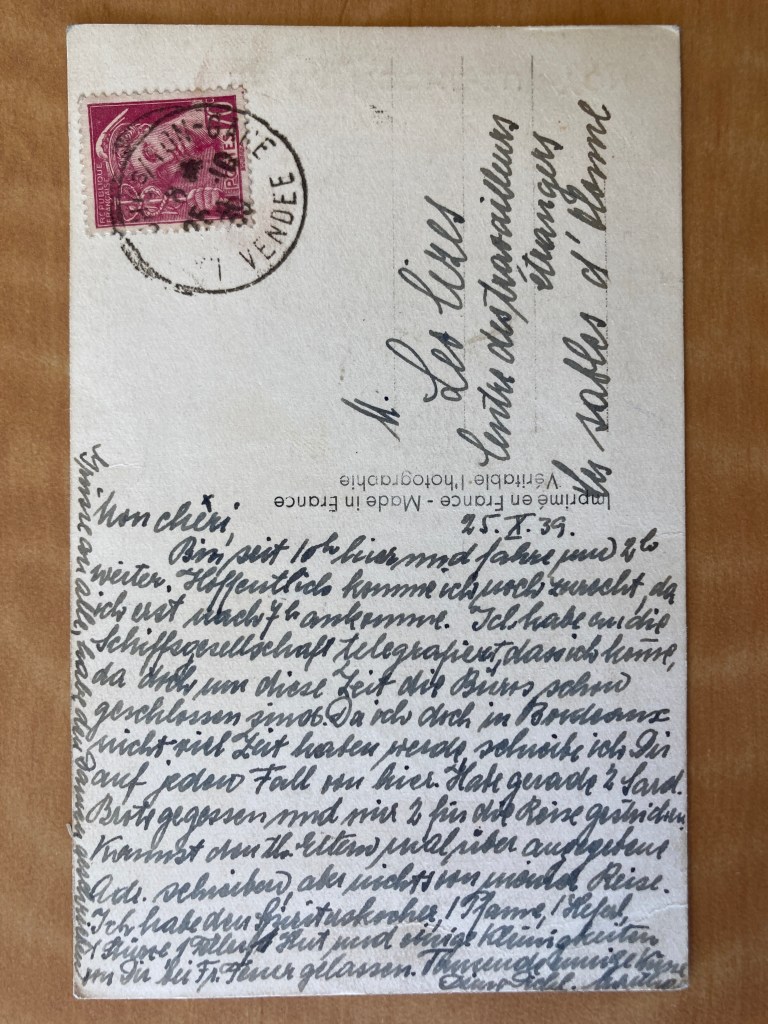 RÉPUBLIQUE
FRANÇAISE
POSTES
70c
VENDEE
M.
Les
Centre des travailleurs
étrangers
Les sables d'Olonne
Imprimé en France - Made in France
Véritable Photographie
25. X. 39.
Mon chéri,
Bin seit 10h hier und fahre um 2h
weiter. Hoffentlich komme ich noch zurecht, da
ich erst nach 7h ankomme. Ich habe an die
Schiffsgesellschaft telegrafiert, dass ich komme,
da doch um diese Zeit die Büros schon
geschlossen sind. Da ich doch in Bordeaux
nicht viel Zeit haben werde, schreibe ich Dir
auf jeden Fall von hier. Habe gerade 2 Sard.
Brote gegessen und mir 2 für die Reise gestrichen.
Kannst den Eltern mal über angegebene
Adr. schreiben, aber nichts von meiner Reise.
Ich habe den Spirituskocher, 1 Pfanne, 1
1 Hut und einige Kleinigkeiten
von Dir bei Fr. gelassen. Tausend innige Küsse